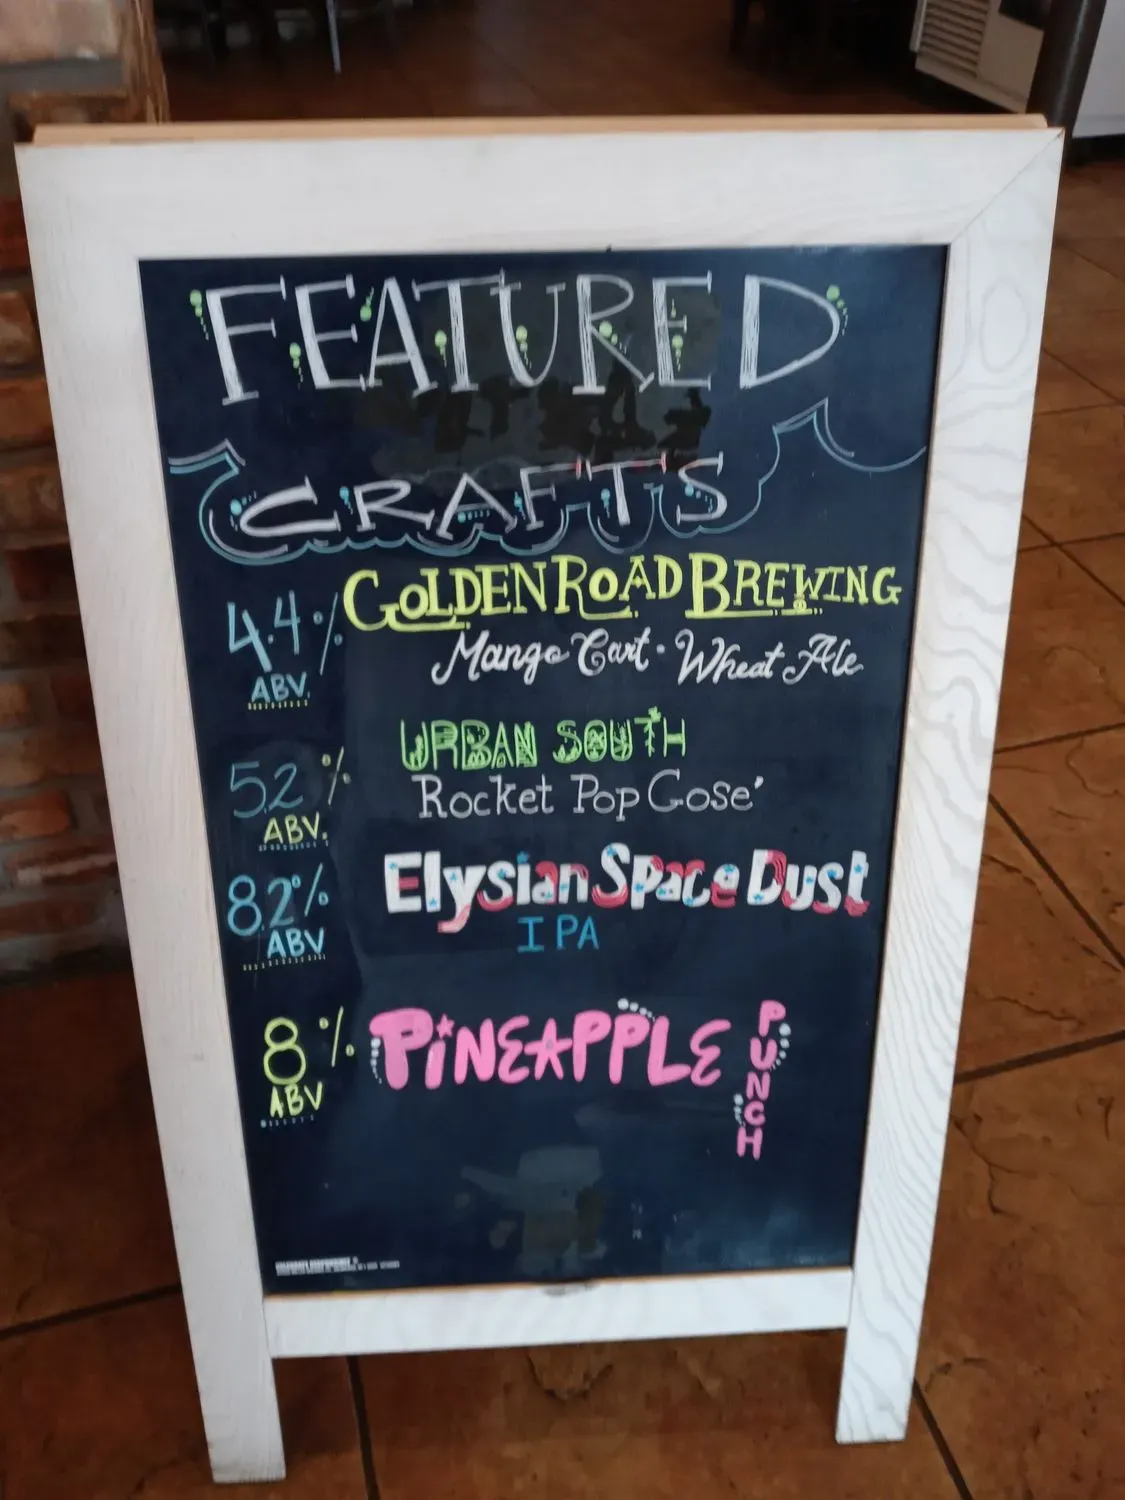 FEATURED
CRAFTS
4.4% ABV.
GOLDEN ROAD BREWING
Mango Cart · Wheat Ale
5.2% ABV.
URBAN SOUTH
Rocket Pop Gose'
8.2% ABV
Elysian Space Dust
IPA
8% ABV
PINEAPPLE
PUNCH